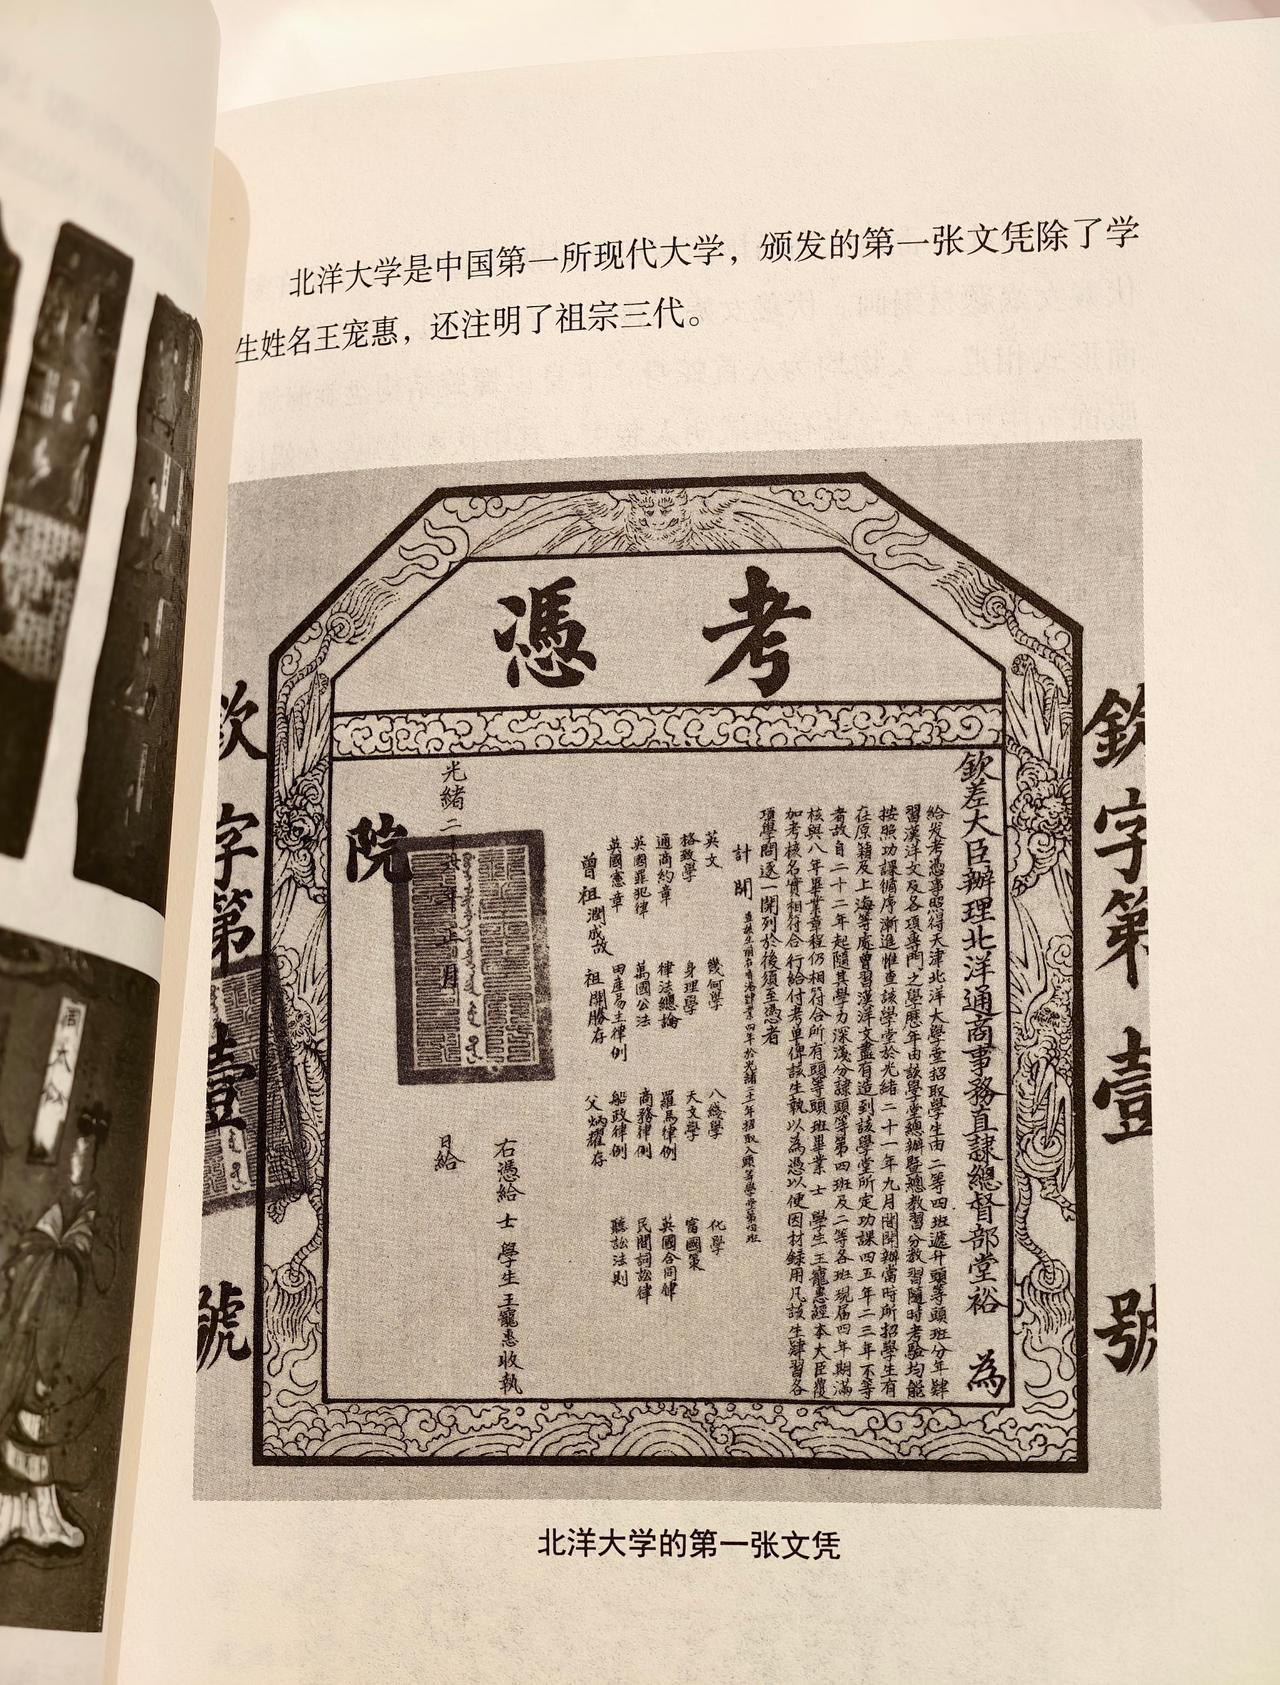 北洋大学是中国第一所现代大学，颁发的第一张文凭除了学
生姓名王宠惠，还注明了祖宗三代。
考憑
欽字第壹號
欽差大臣辦理北洋通商事務直隸總督部堂裕 為
給发考憑事照得天津北洋大學堂招取學生由二等四班遞升頭等頭班分年肄
習漢洋文及各項專門之學歷年由該學堂總辦暨總教習分教習隨時考驗均能
按照功課循序漸進惟查該學堂於光緒二十一年九月間開辦當時所招學生有
在原籍及上海等處曾習漢洋文盡有造到該學堂所定功課四五年二三年不等
者故自二十二年起隨其學力深淺分隸頭等第四班及二等各班現屆四年期滿
核與八年畢業章程仍相符合所有頭等頭班畢業 士 學生王寵惠經本大臣覆
加考核名實相符合行給付考单俾該生執以為憑以便因材錄用凡該生肄習各
項學問逐一開列於後須至憑者
計開
英文 幾何學 八綫學 化學
格致學 身理學 天文學 富國策
通商約章 律法總論 羅馬律例 英國合同律
英國罪犯律 萬國公法 商務律例 民間詞訟律
英國憲章 田產易主律例 船政律例 聽訟法則
曾祖潤成故 祖開勝存 父炳耀存
右憑給 士 學生王寵惠收執
光緒二十六年正月 日給
院
欽字第壹號
北洋大学的第一张文凭